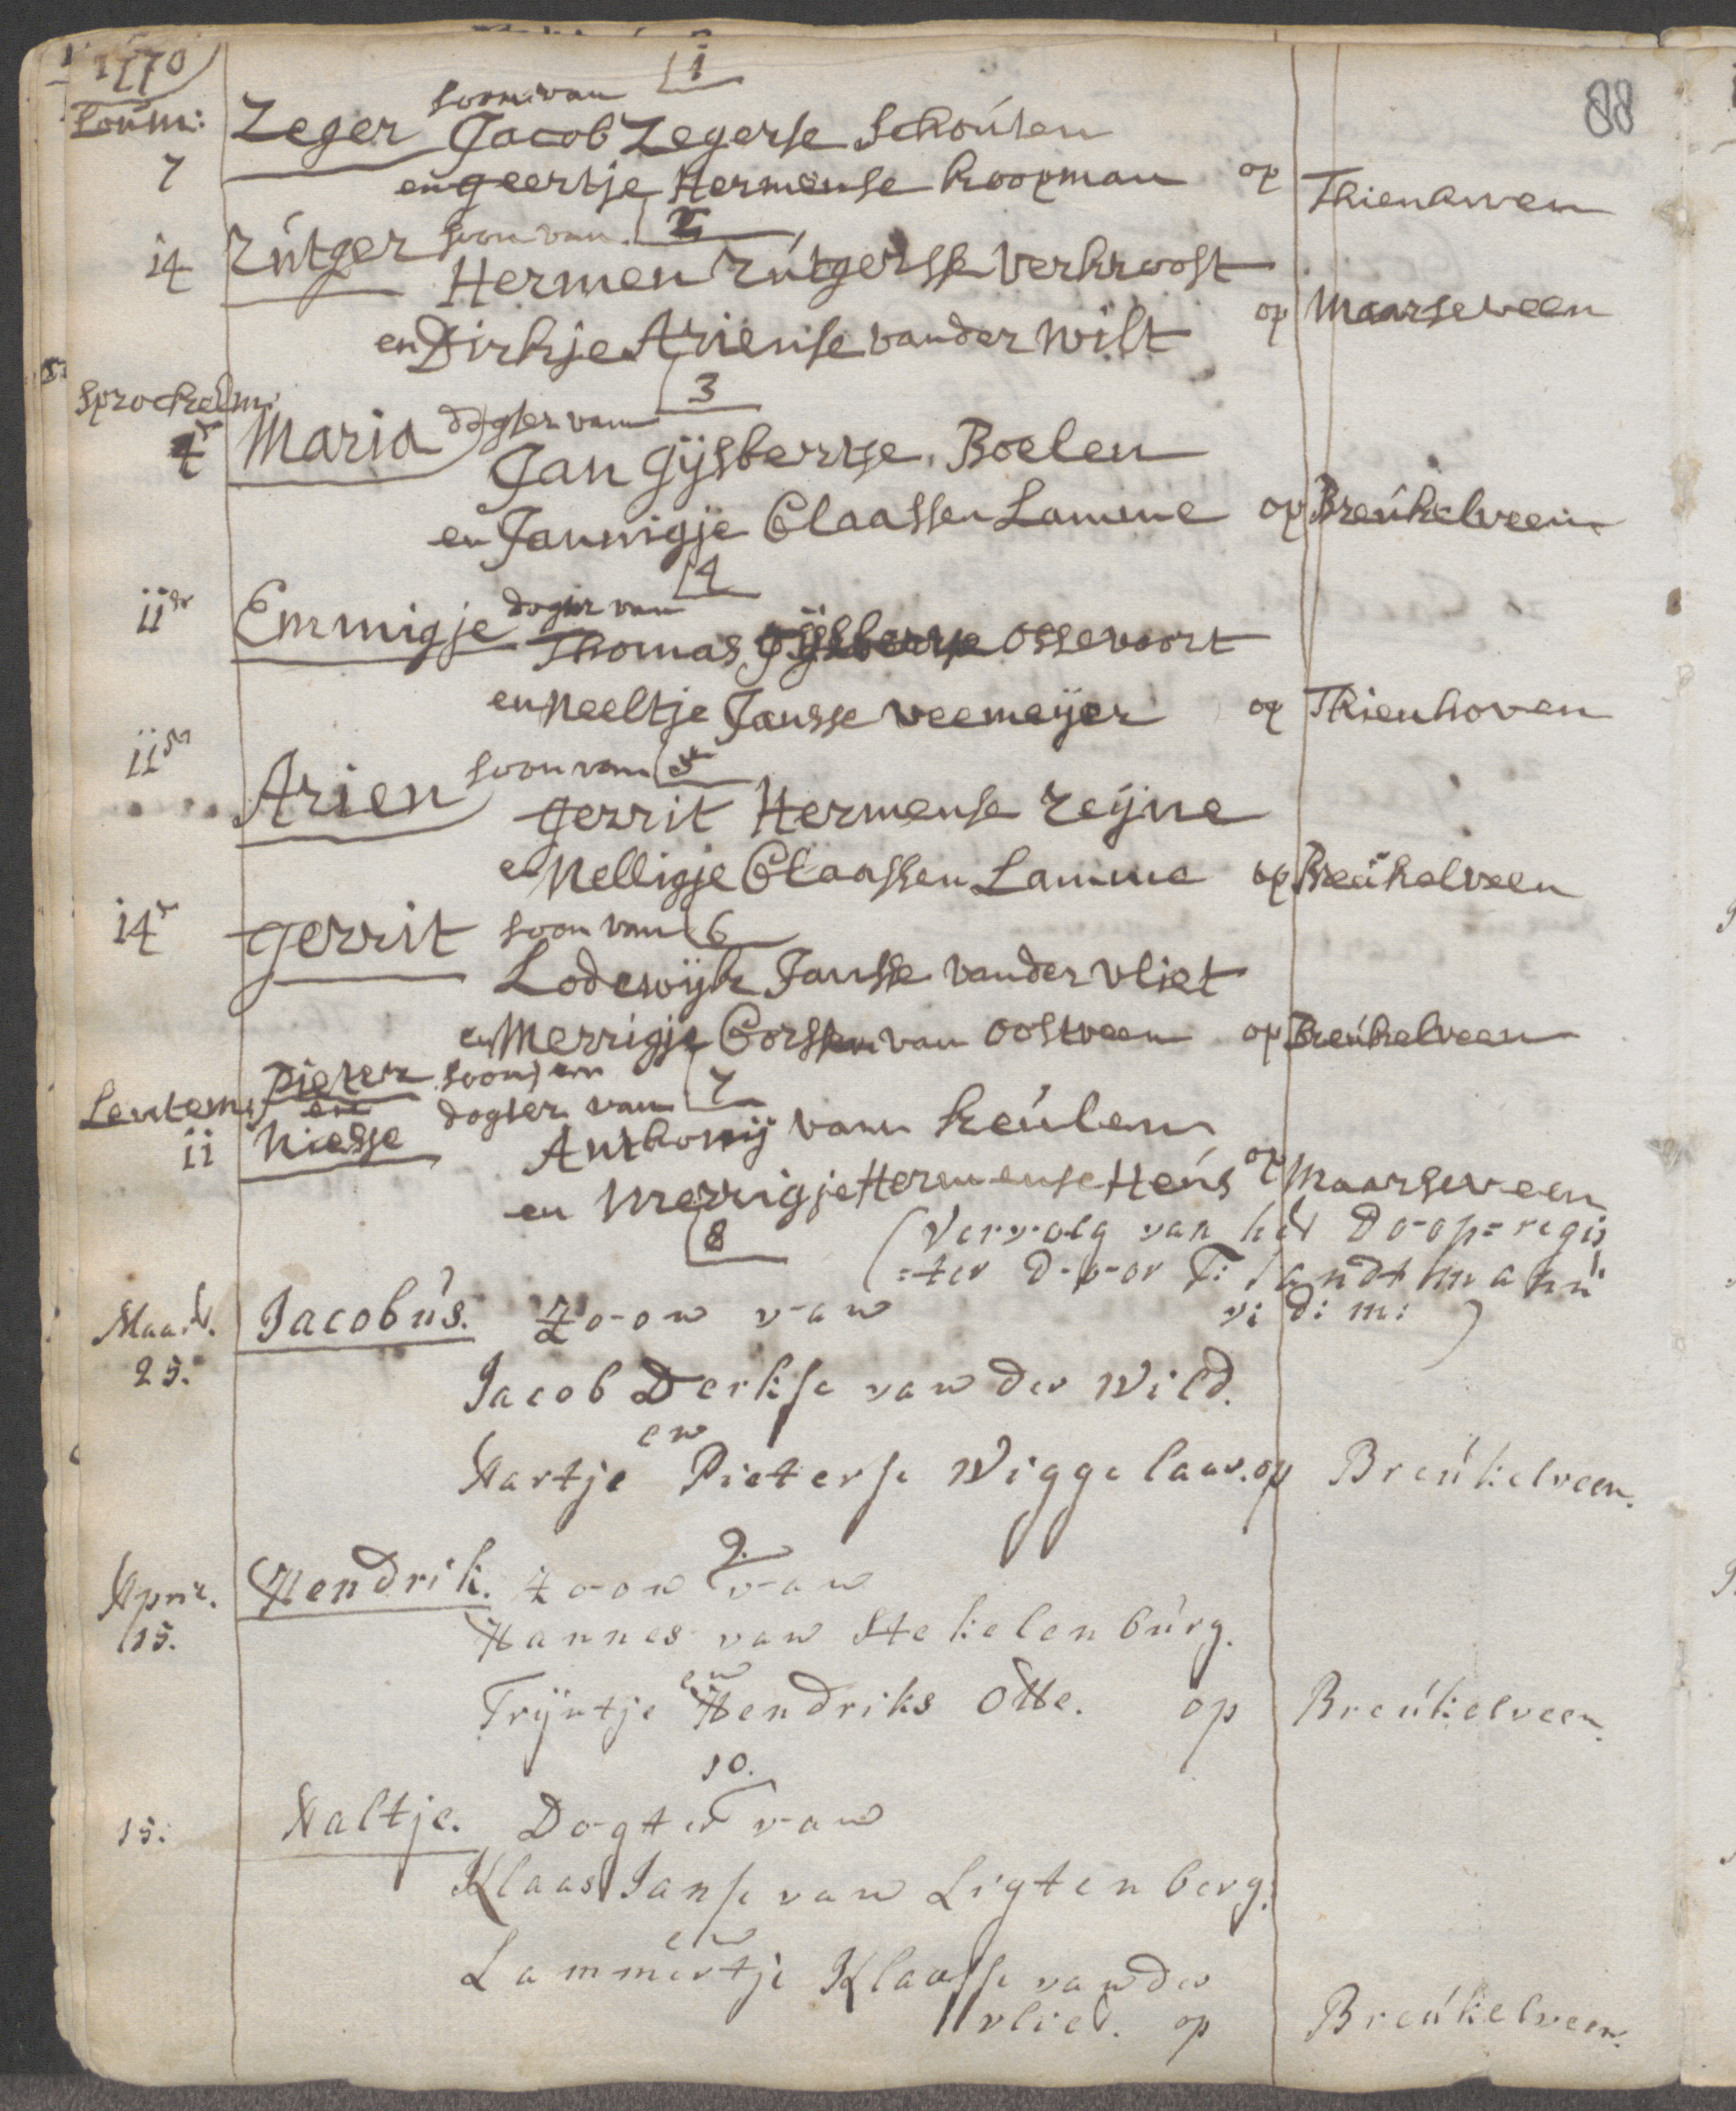 1770
88
1
Loúm: Zeger soon van
Jacob Zegerse Schoúten
7 en geertje Hermense koopman op Thienhoven
2
i4 Rútger soon van
Hermen Rútgersse verkroost
en Dirkje Ariense vander wilt op Maarseveen
Sprockelm:
3
4 Maria dogter van
Jan Gijsbertse Boelen
en Jannigje Claassen Lamme op Breúkelveen
4
ii Emmigje dogter van
Thomas ossevoort
en Neeltje Jansse veemeijer op Thienhoven
5
ii Arien soon van
gerrit Hermense Reijne
en Nelligje Claassen Lamme op Breúkelveen
i4 gerrit soon van 6
Lodewijk Jansse vander vliet
en Merrigje Corssen van oostveen op Breúkelveen
Lentem: Pieter soon en
en dogter van 7
ii Niesje
Anthonij van Keúlen
en Merrigje Hermense Heús op Maarseveen
8 (Vervolg van het Doop=regis
=ter door F: Landtman
Maart. Jacobús. Zoon van v: d: m: )
25.
Jacob Derkse van der Wild.
en
Aartje Pieterse Wiggelaar. op Breúkelveen.
9.
April. Hendrik. zoon van
15. Hannes van Stekelenbúrg.
en
Trijntje Hendriks Otte. op Breúkelveen.
10.
15. Aaltje. Dogter van
Klaas Janse van Ligtenberg.
en
Lammertje Klaasse van der
vliet. op Breúkelveen.